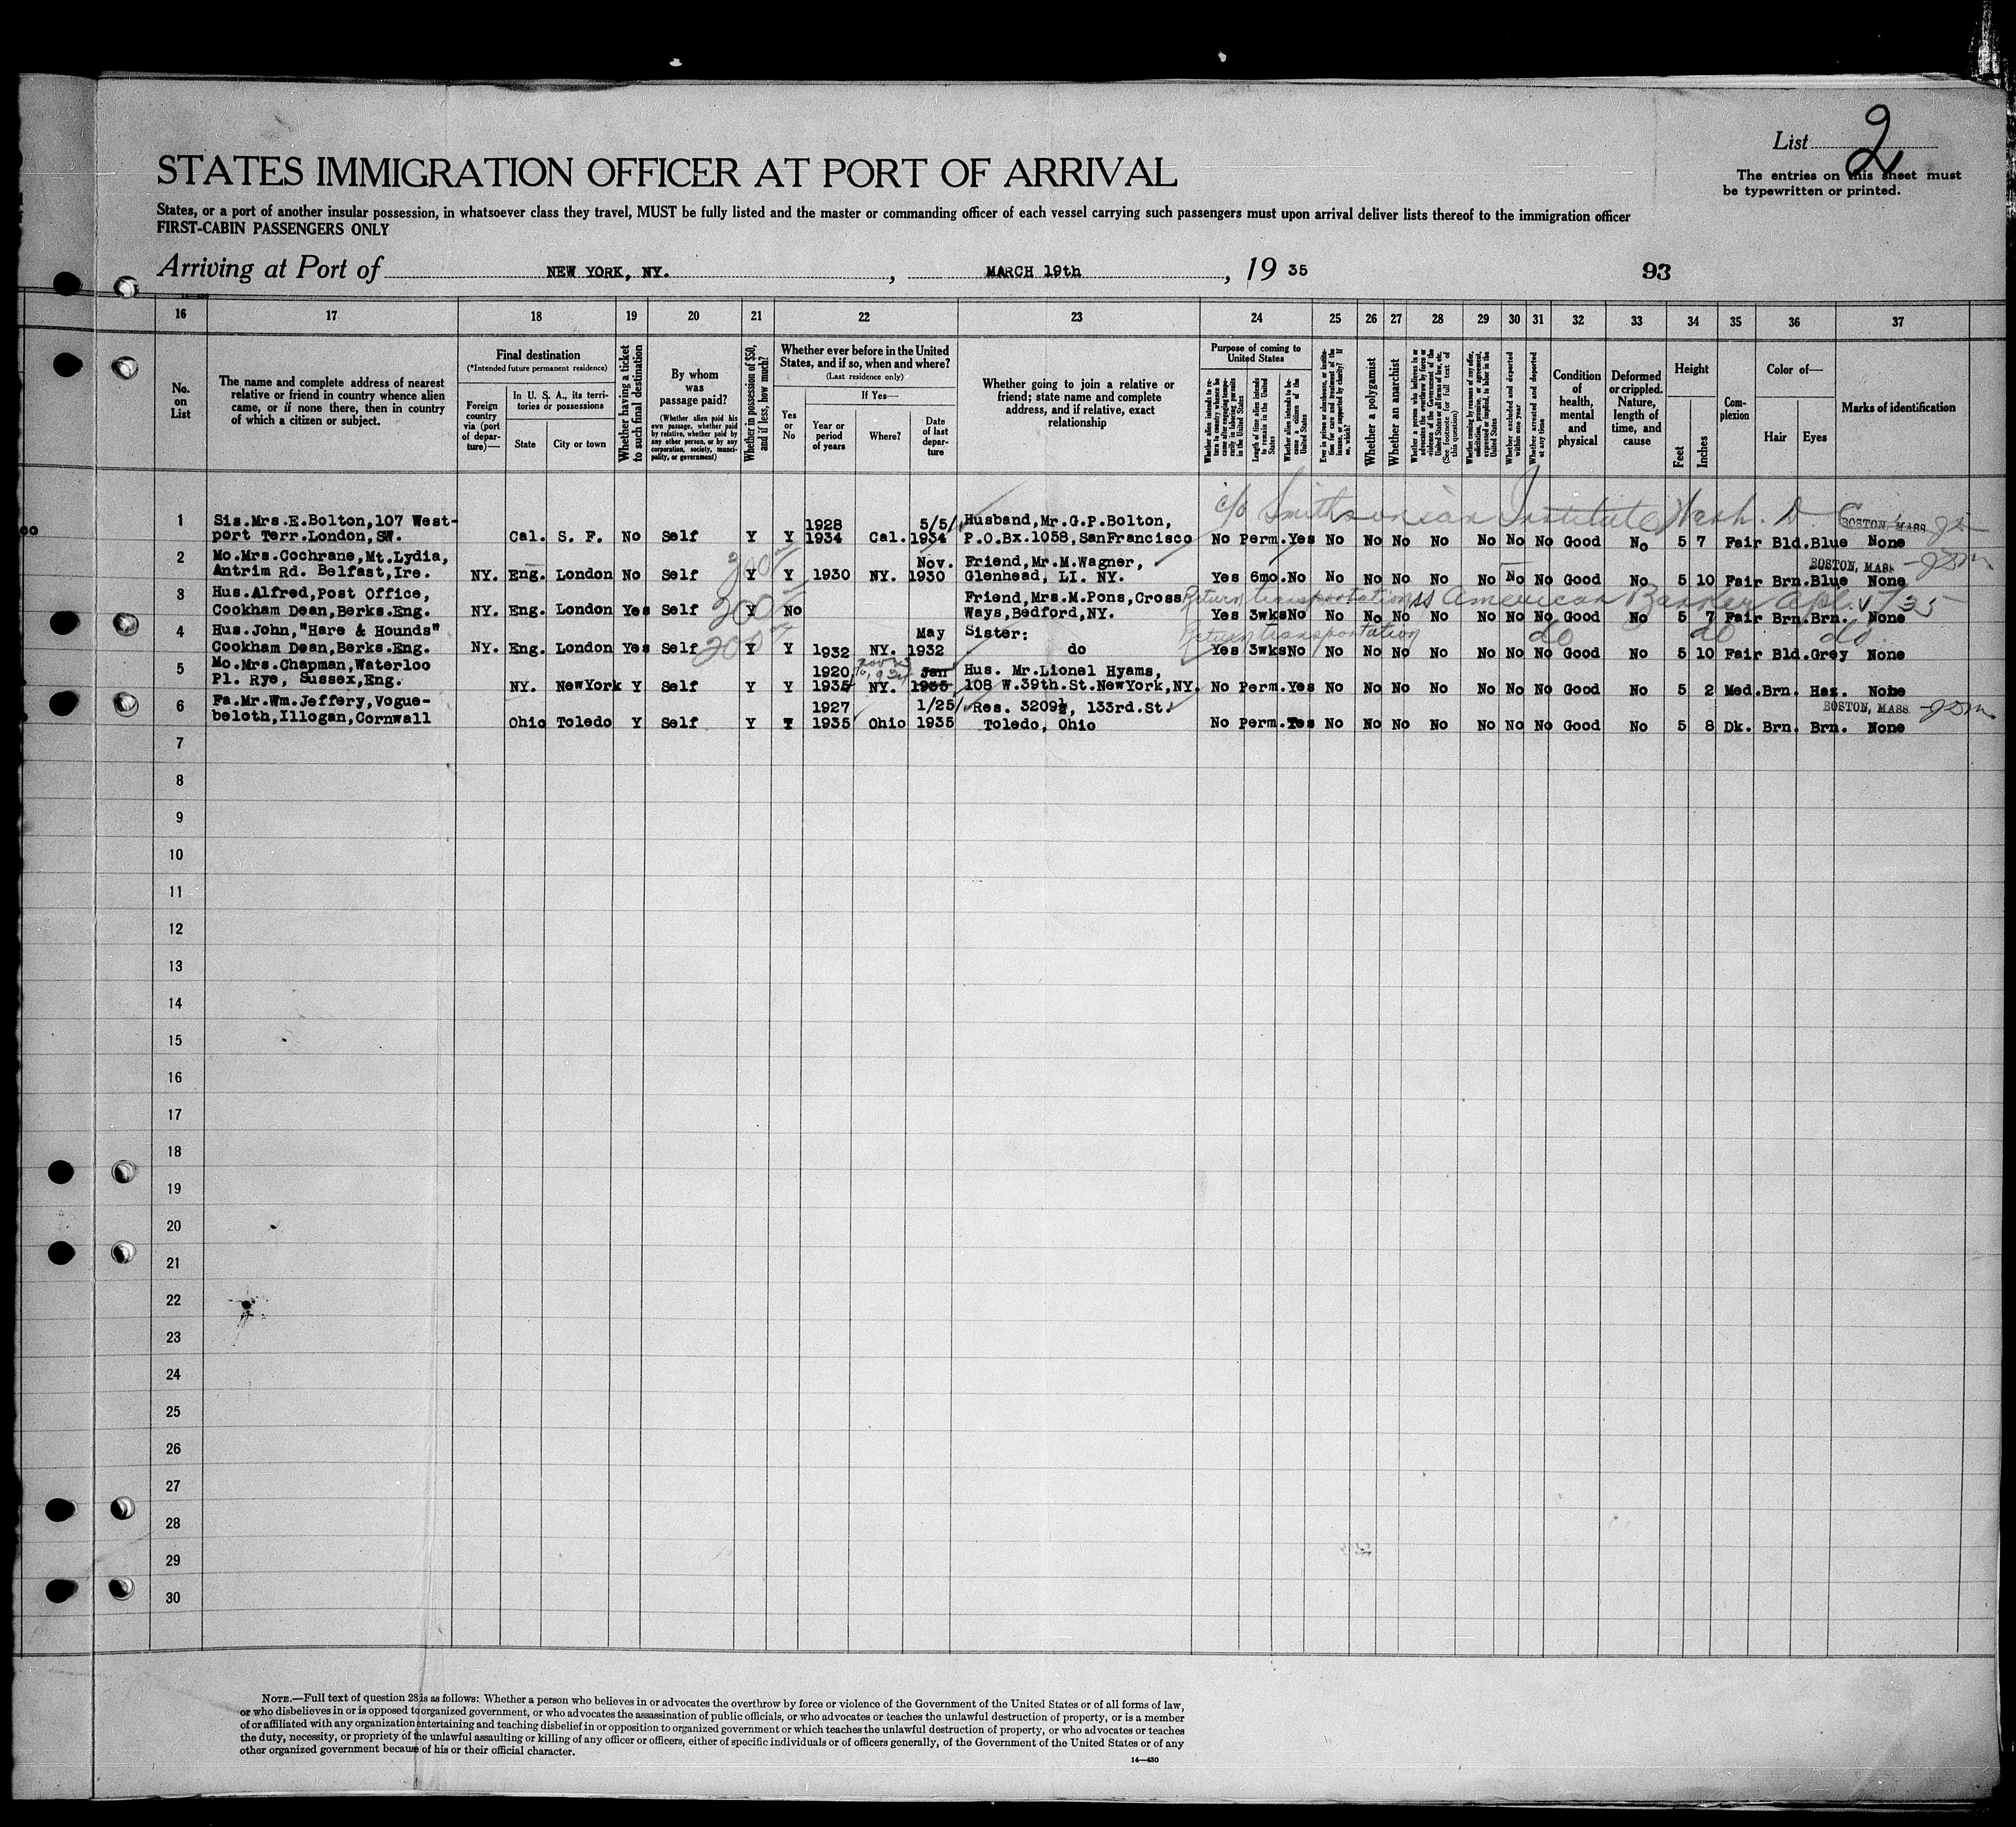 List 2
The entries on this sheet must
be typewritten or printed.
STATES IMMIGRATION OFFICER AT PORT OF ARRIVAL
States, or a port of another insular possession, in whatsoever class they travel, MUST be fully listed and the master or commanding officer of each vessel carrying such passengers must upon arrival deliver lists thereof to the immigration officer
FIRST-CABIN PASSENGERS ONLY
Arriving at Port of NEW YORK, NY. , MARCH 19th , 19 35 93
16 17 18 19 20 21 22 23 24 25 26 27 28 29 30 31 32 33 34 35 36 37
No. on List
The name and complete address of nearest relative or friend in country whence alien came, or if none there, then in country of which a citizen or subject.
Final destination
(*Intended future permanent residence)
Foreign country via (port of departure)—
In U. S. A., its territories or possessions
State
City or town
Whether having a ticket to such final destination
By whom was passage paid?
(Whether alien paid his own passage, whether paid by relative, whether paid by any other person, or by any corporation, society, municipality, or government)
Whether in possession of $50, and if less, how much?
Whether ever before in the United States, and if so, when and where?
(Last residence only)
Yes or No
If Yes—
Year or period of years
Where?
Date of last departure
Whether going to join a relative or friend; state name and complete address, and if relative, exact relationship
Purpose of coming to United States
Length of time alien intends to remain in the United States
Whether alien intends to become a citizen of the United States
Whether a polygamist
Whether an anarchist
Whether excluded and deported within one year
Whether arrested and deported at any time
Condition of health, mental and physical
Deformed or crippled. Nature, length of time, and cause
Height
Feet
Inches
Complexion
Color of—
Hair
Eyes
Marks of identification
c/o Smithsonian Institute Wash. D. C.
BOSTON, MASS.
1 Sis.Mrs.E.Bolton,107 West- 1928 5/5/ Husband,Mr.G.P.Bolton,
port Terr.London,SW. Cal. S. F. No Self Y Y 1934 Cal. 1934 P.O.Bx.1058,SanFrancisco No Perm. Yes No No No No No No No Good No 5 7 Fair Bld. Blue None
BOSTON, MASS.
2 Mo.Mrs.Cochrane,Mt.Lydia, 200 Nov. Friend,Mr.M.Wagner,
Antrim Rd. Belfast,Ire. NY. Eng. London No Self Y Y 1930 NY. 1930 Glenhead, LI. NY. Yes 6mo. No No No No No No No No Good No 5 10 Fair Brn. Blue None
Return transportation SS American Banker Apl.
3 Hus.Alfred,Post Office, 200 Friend,Mrs.M.Pons,Cross
Cookham Dean,Berks.Eng. NY. Eng. London Yes Self Y No Ways,Bedford,NY. Yes 3wks No No No No No No No No Good No 5 7 Fair Brn. Brn. None
Return transportation do do do
4 Hus.John,"Hare & Hounds" 200 May Sister:
Cookham Dean,Berks.Eng. NY. Eng. London Yes Self Y Y 1932 NY. 1932 do Yes 3wks No No No No No No No No Good No 5 10 Fair Bld. Grey None
5 Mo.Mrs.Chapman,Waterloo 1920 Jan Hus. Mr.Lionel Hyams,
Pl. Rye, Sussex,Eng. NY. NewYork Y Self Y Y 1935 NY. 1935 108 W.39th.St.NewYork,NY. No Perm. Yes No No No No No No No Good No 5 2 Med. Brn. Haz. None
BOSTON, MASS.
6 Fa.Mr.Wm.Jeffery,Vogue- 1927 1/25/ Res. 3209½, 133rd.St.
beloth,Illogan,Cornwall Ohio Toledo Y Self Y Y 1935 Ohio 1935 Toledo, Ohio No Perm. Yes No No No No No No No Good No 5 8 Dk. Brn. Brn. None
7
8
9
10
11
12
13
14
15
16
17
18
19
20
21
22
23
24
25
26
27
28
29
30
NOTE.—Full text of question 28 is as follows: Whether a person who believes in or advocates the overthrow by force or violence of the Government of the United States or of all forms of law,
or who disbelieves in or is opposed to organized government, or who advocates the assassination of public officials, or who advocates or teaches the unlawful destruction of property, or is a member
of or affiliated with any organization entertaining and teaching disbelief in or opposition to organized government or which teaches the unlawful destruction of property, or who advocates or teaches
the duty, necessity, or propriety of the unlawful assaulting or killing of any officer or officers, either of specific individuals or of officers generally, of the Government of the United States or of any
other organized government because of his or their official character.
14—430